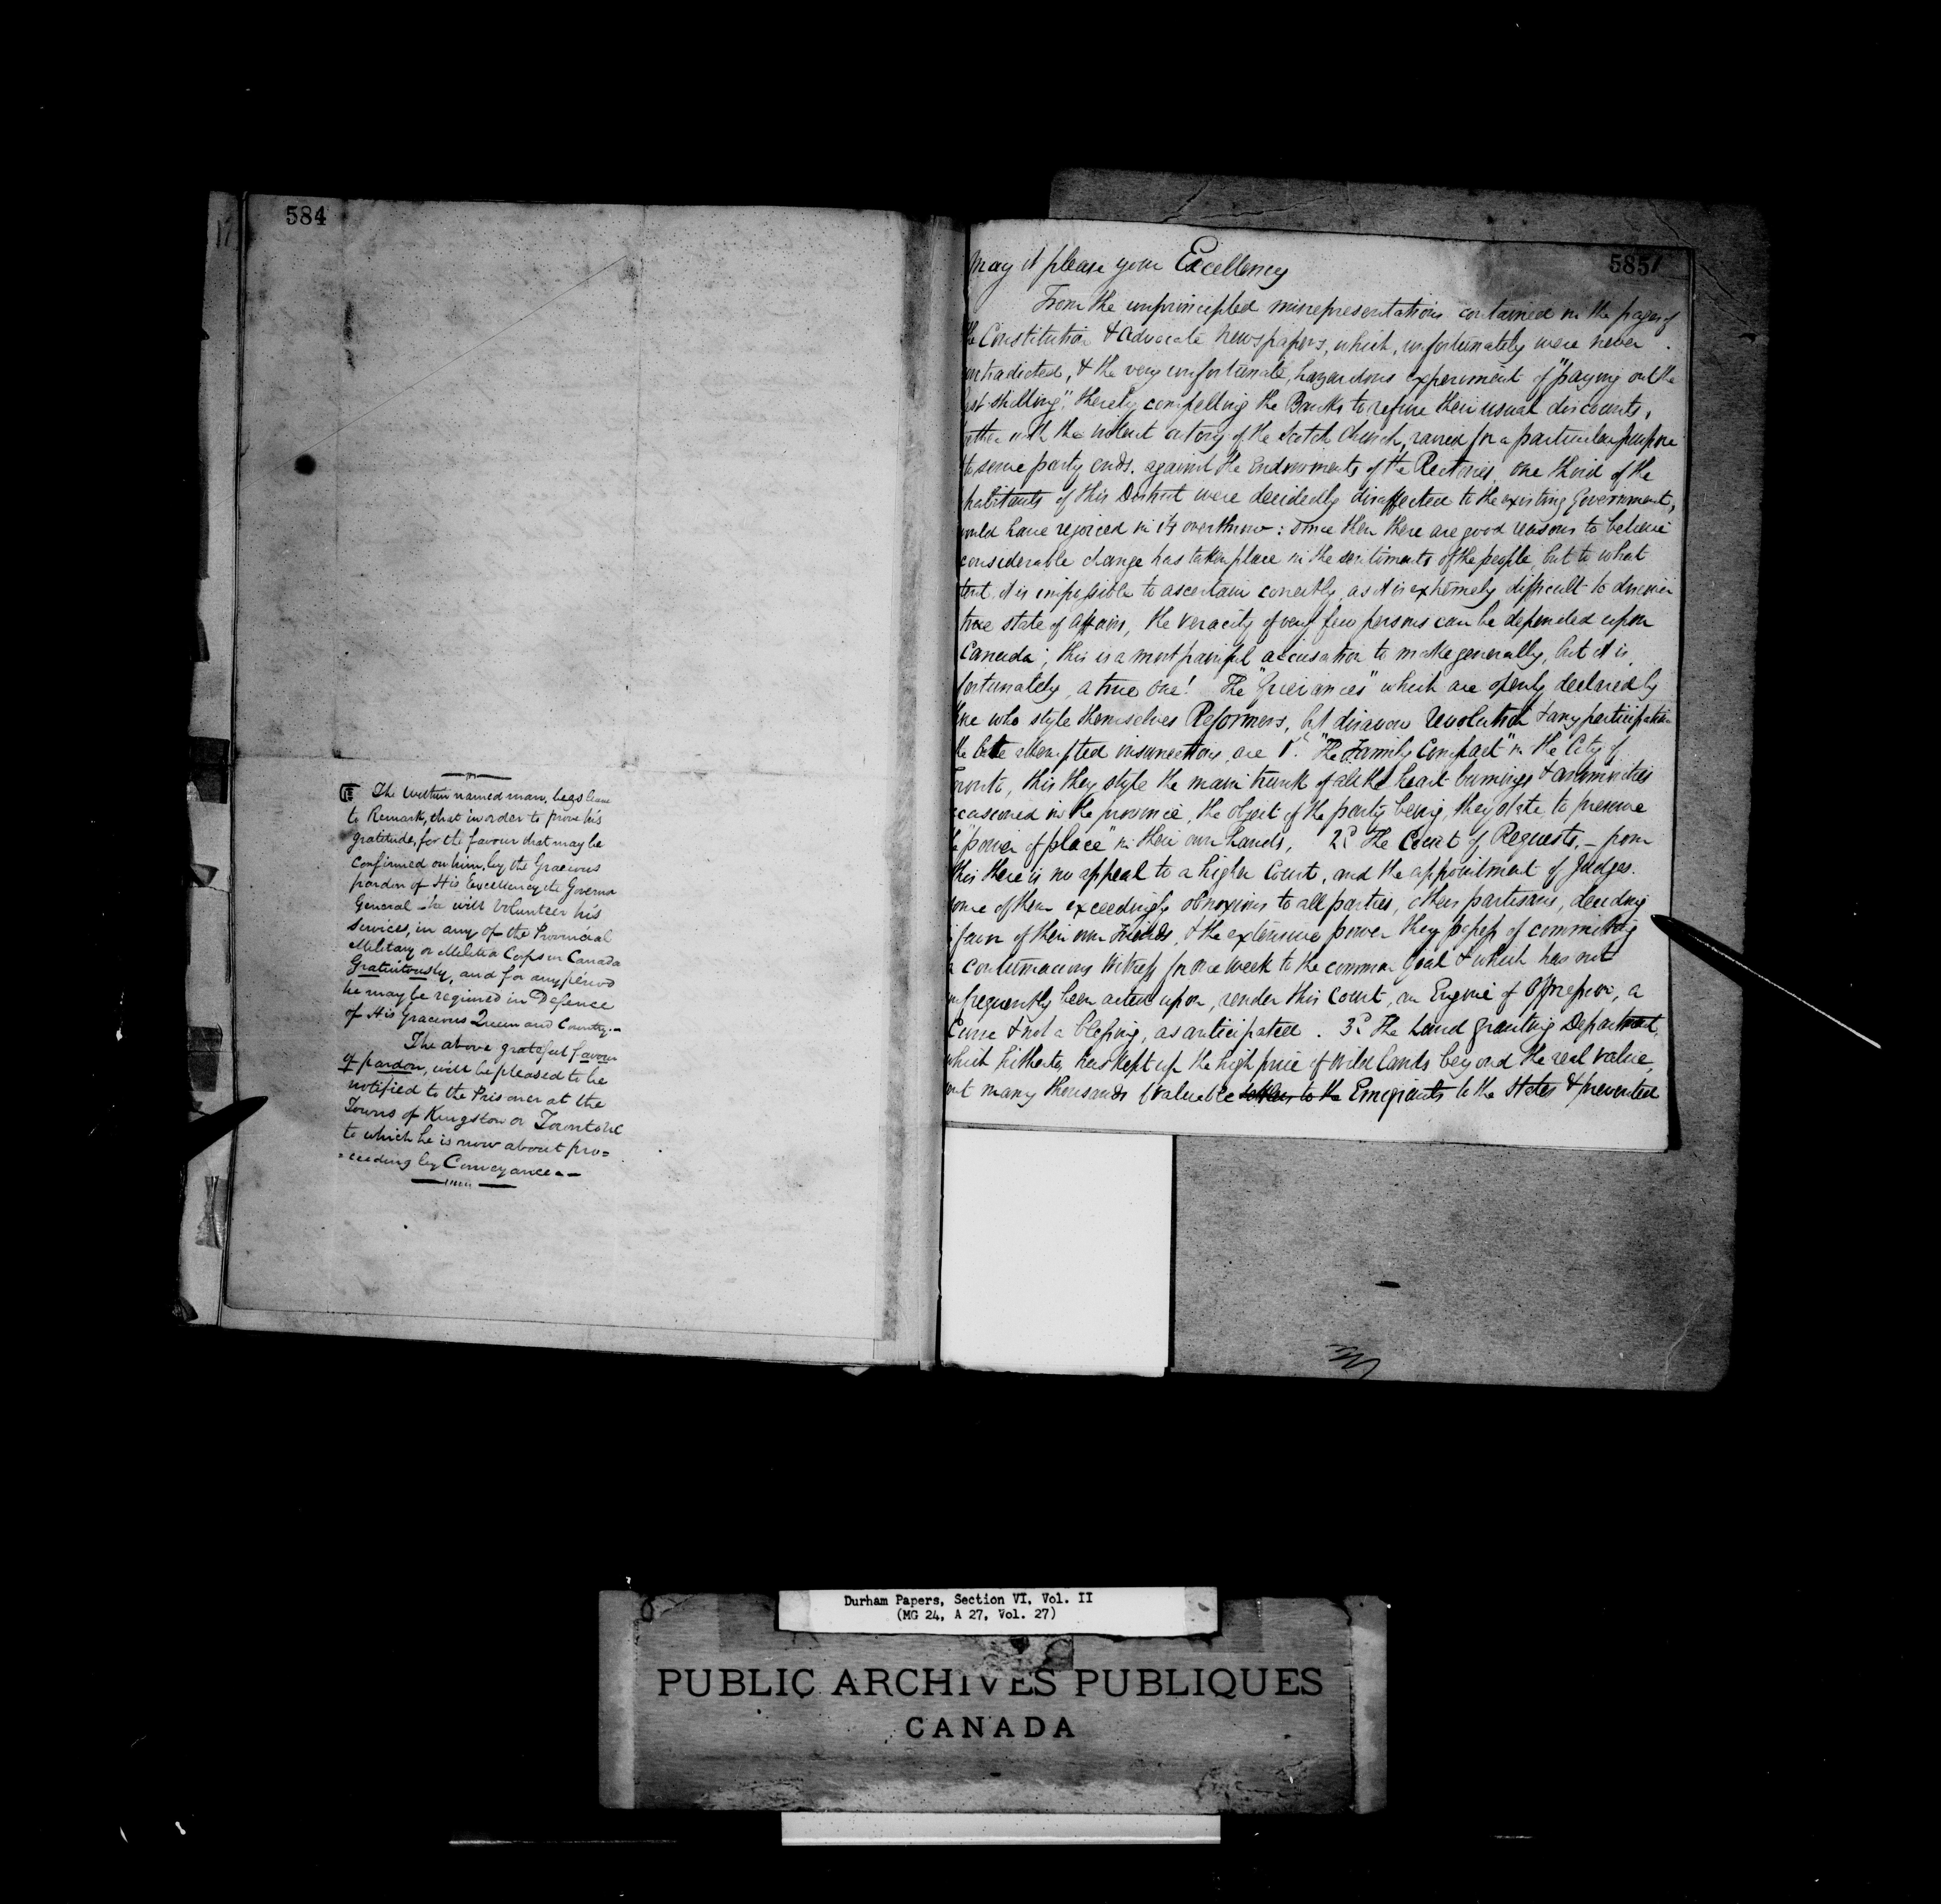 584
The within named man, begs leave
to Remark, that in order to prove his
gratitude, for the favour that may be
confirmed on him, by the Gracious
pardon of His Excellency the Governor
General - he will Volunteer his
Services, in any of the Provincial
Military or Militia Corps in Canada
Gratuitously, and for any period
he may be required in Defence
of His Gracious Queen and Country.-
The above grateful favour
of pardon, will be pleased to be
notified to the Prisoner at the
Towns of Kingston or
to which he is now about pro=
=ceeding by Conveyance.-
585
May it please your Excellency
From the unprincipled misrepresentations contained in the pages of
the Constitution & Advocate Newspapers, which, unfortunately were never
ontradicted, & the very unfortunate, hazardous experiment of "paying out the
ast shilling", thereby compelling the Banks to refuse their usual discounts,
ether with the violent outcry of the Scotch Church, raised for a particular purpose
to serve party ends, against the Endowments of the Rectories, one third of the
habitants of this District were decidedly disaffected to the existing Government,
ould have rejoiced in its overthrow: since then there are good reasons to believe
considerable change has taken place in the sentiments of the people, but to what
tent, it is impossible to ascertain correctly, as it is extremely difficult to discover
true state of affairs, the veracity of very few persons can be depended upon
Canada; this is a most painful accusation to make generally, but it is,
fortunately, a true one! The "Grievances" which are openly declared by
those who style themselves Reformers, but disavow Revolution & any participation
the late attempted insurrection, are 1st. "The Family Compact" in the City of
oronto, this they style the main trunk of all the heart-burnings & animosities
ccasioned in the province, the object of the party being, they state, to preserve
"power of place" in their own hands, 2d The Court of Requests, - from
this there is no appeal to a higher Court, and the appointment of Judges.
some of them exceedingly obnoxious to all parties, others partisans, deciding
favor of their own Friends, & the extensive power they possess of committing
a contumacious Witness for one week to the common Goal & which has not
nfrequently been acted upon, render this Court, an Engine of Oppression, a
Curse & not a blessing, as anticipated. 3d The Land Granting Department,
which hitherto, has kept up the high price of Wild Lands beyond the real value,
ent many thousands of valuable settlers to the Emigrants to the States & prevented
Durham Papers, Section VI, Vol. II
(MG 24, A 27, Vol. 27)
PUBLIC ARCHIVES PUBLIQUES
CANADA